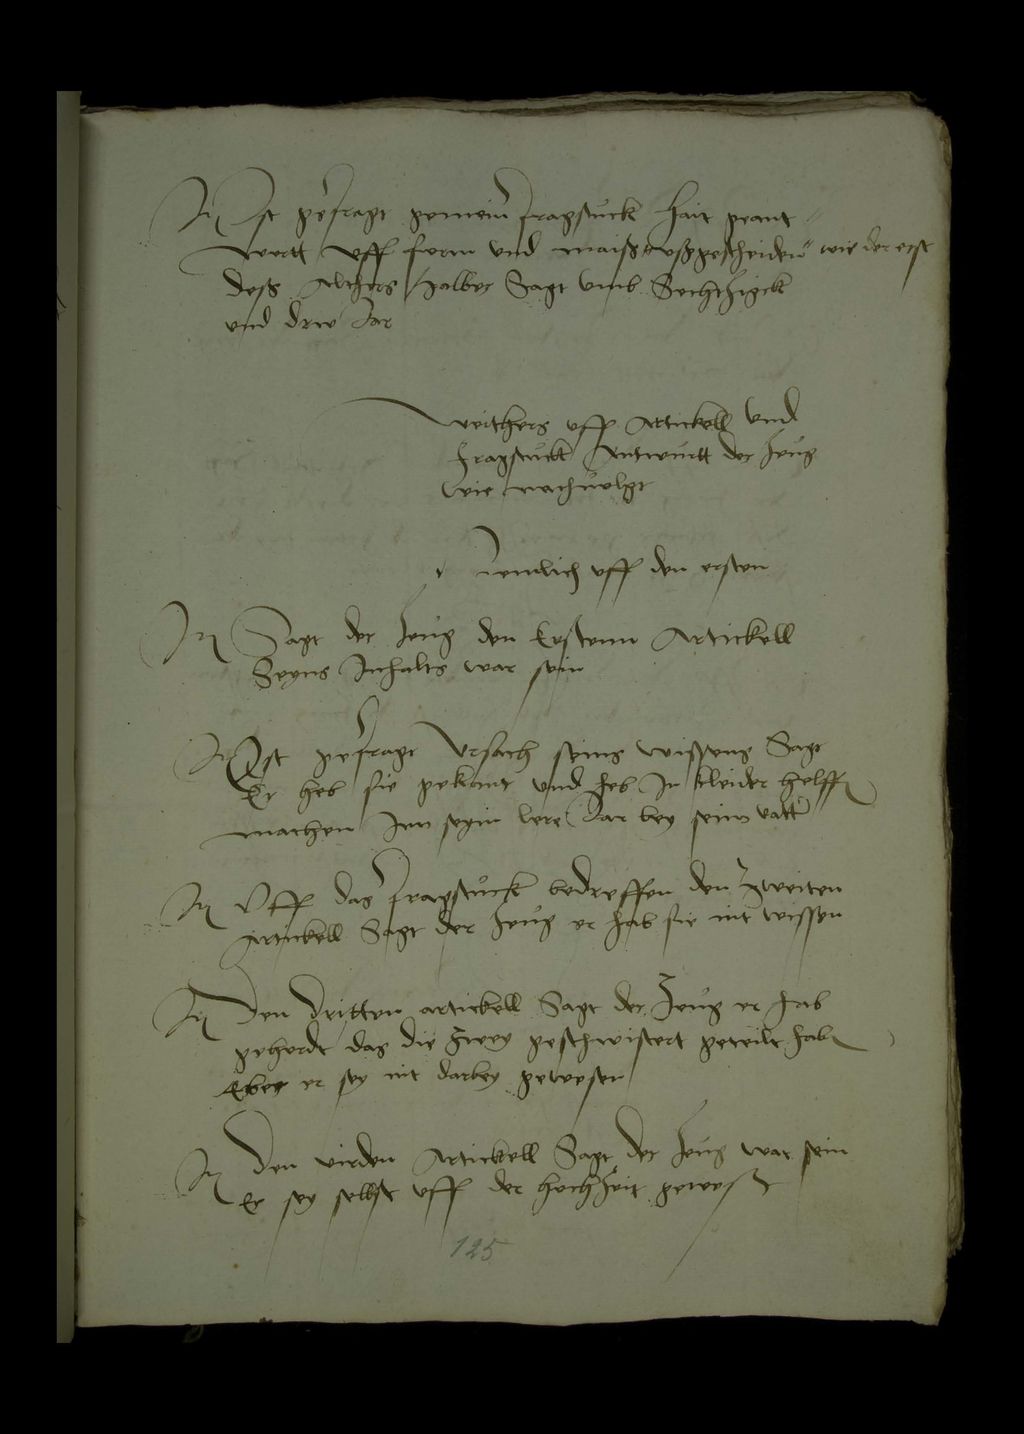 It Ist gefragt gemein fragstuck hait geant
wertt uff form und maiß ußgescheiden wie der erst
deß Althers halber Sagt umb Sechtzigck
und drw Jar
weithers uff Artickell und
fragstuckt Antwurtt der zeug
wie nachuolgt
nemlich uff den ersten
It Sagt der zeug den Erstenn Artickell
Seyns Inhalts war sein
It Ist gefragt Ursach seins wissens Sagt
Er heb sie gekant und heb In kleider helff
machen Inn seyin lere Jar bey seim vatt
It Uff das fragstuck bedreffen den zweiten
Artickell Sagt der zeug er hab sie nit wissen
It Den dritten artickell Sagt der zeug er hab
gehordt das die zwey geschwistert geteilt hab
Aber er sy nit darbey gewesen
It Den virden Artickell Sagt der zeug war sein
Er sey selbst uff der hochzeit geweßt
125